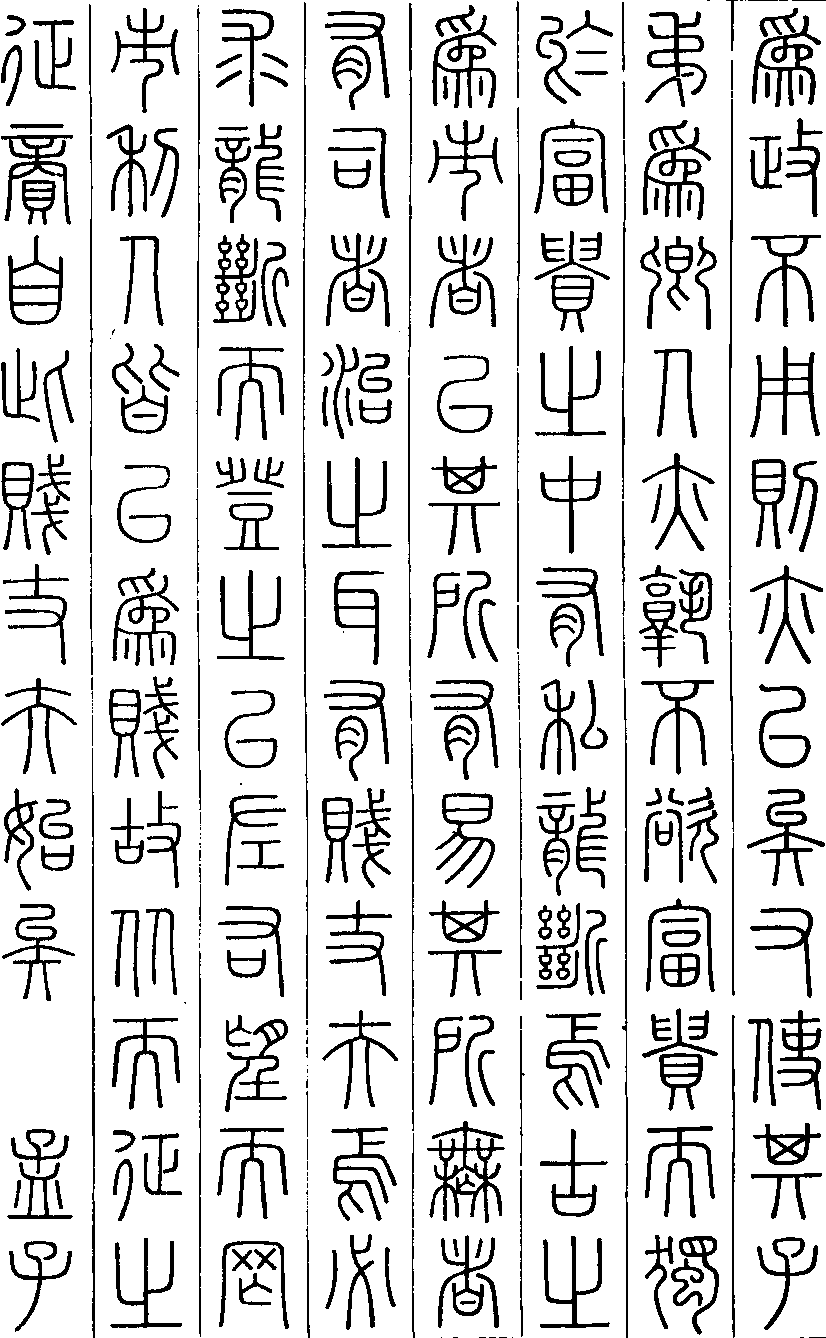 為政不用則亦已矣又使其子
弟為卿人亦孰不欲富貴而獨
於富貴之中有私龍斷焉古之
為市者以其所有易其所無者
有司者治之耳有賤丈夫焉必
求龍斷而登之以左右望而罔
市利人皆以為賤故从而征之
征商自此賤丈夫始矣 孟子